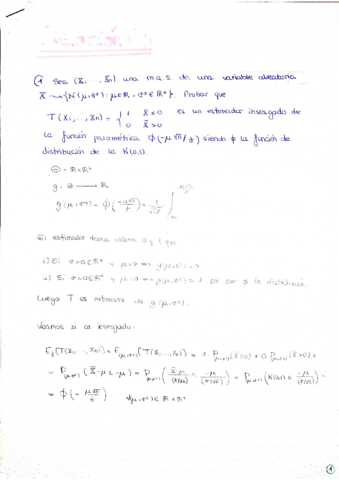 ① Sea (X₁, ..., Xn) una m.a.s. de una variable aleatoria
X ~> {N(μ, σ²): μ∈ℝ, σ²∈ℝ⁺}. Probar que
T(X₁, ..., Xn) = { 1 X̄ ≤ 0 es un estimador insesgado de
0 X̄ > 0
la función paramétrica Φ(-μ√n/σ) siendo Φ la función de
distribución de la N(0,1).
Θ = ℝ×ℝ⁺
g: Θ → ℝ
g(μ, σ²) = Φ(-μ√n/σ) =
El estimador toma valores 0 y 1
Luego T es estimador de g(μ, σ²).
Veamos si es insesgado:
E[T(X₁, ..., Xn)] = E(μ,σ²)[T(X₁, ..., Xn)] = 1. P(μ,σ²)(X̄ ≤ 0) + 0 P(μ,σ²)(X̄ > 0) =
= P(μ,σ²)(X̄ - μ ≤ -μ) = P(μ,σ²)(X̄-μ/(σ/√n) ≤ -μ/(σ/√n)) = P(μ,σ²)(N(0,1) ≤ -μ/(σ/√n)) =
= Φ(- μ√n/σ) ∀(μ,σ²) ∈ ℝ×ℝ⁺
①